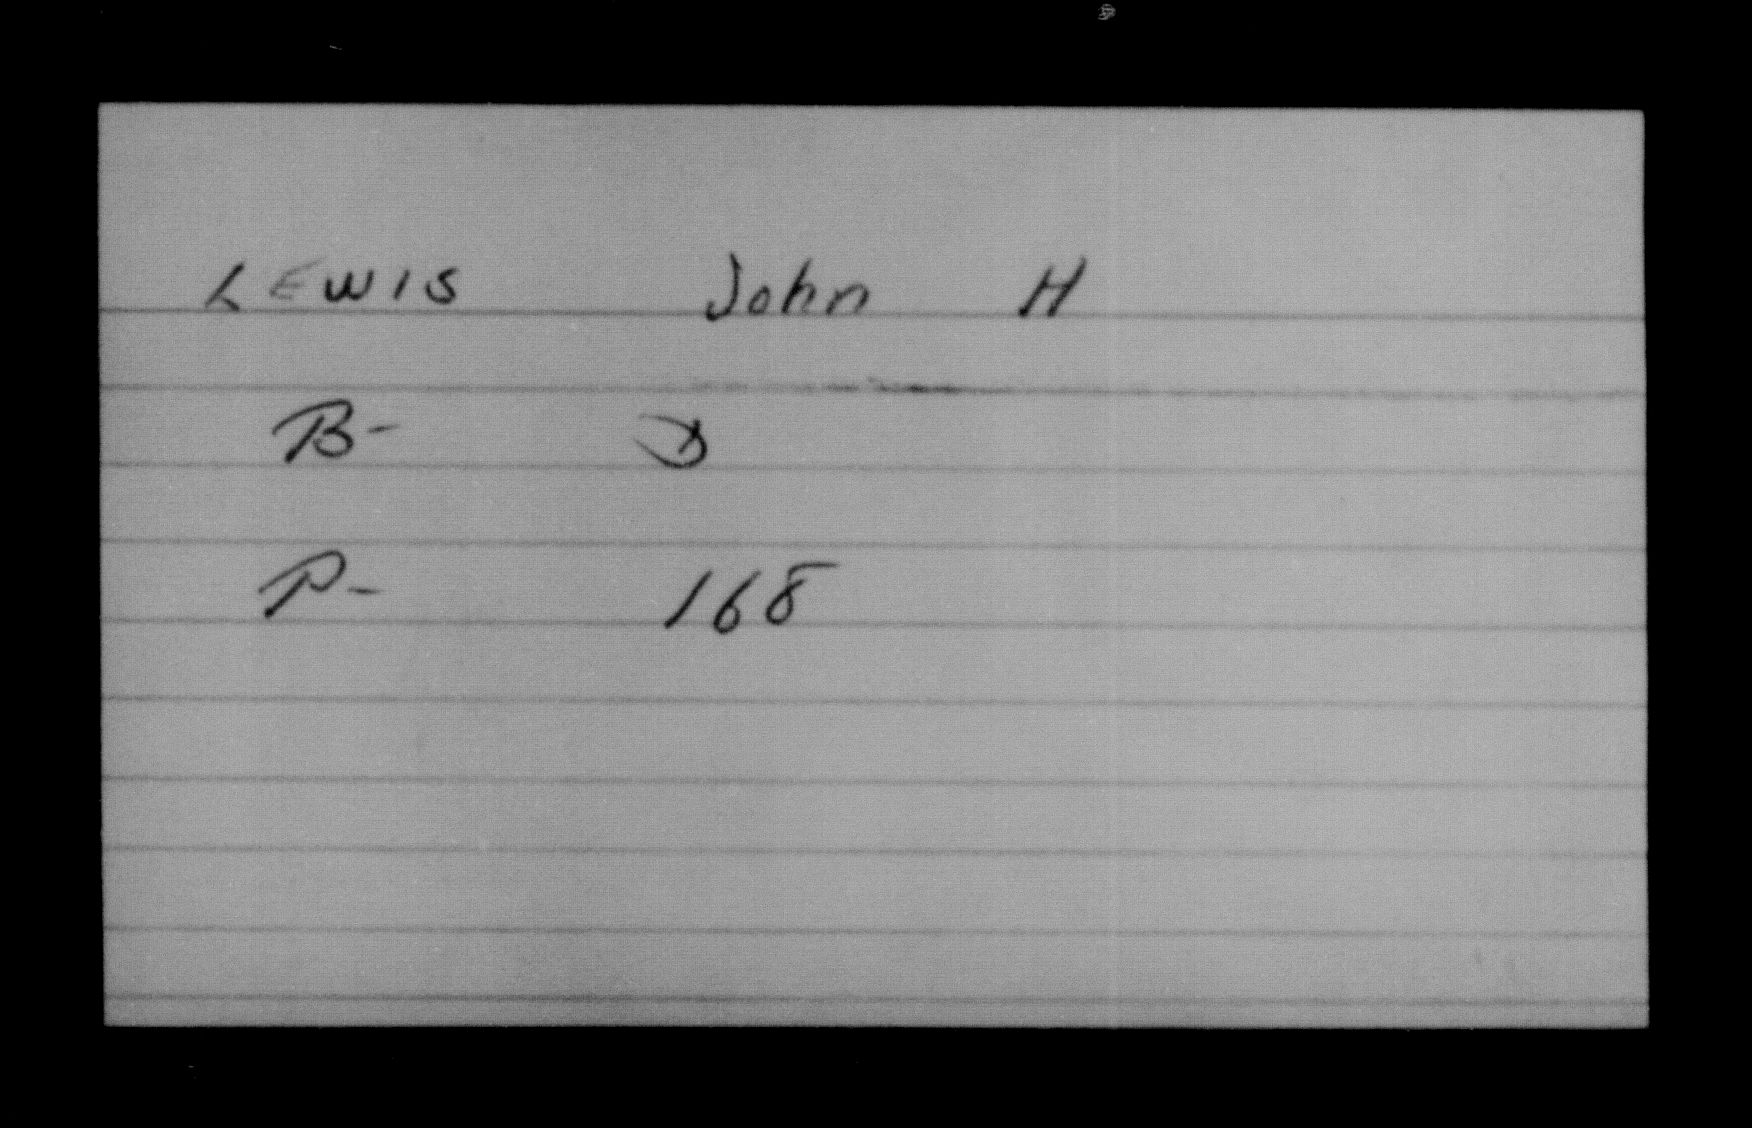 LEWIS John H
B- D
P- 168